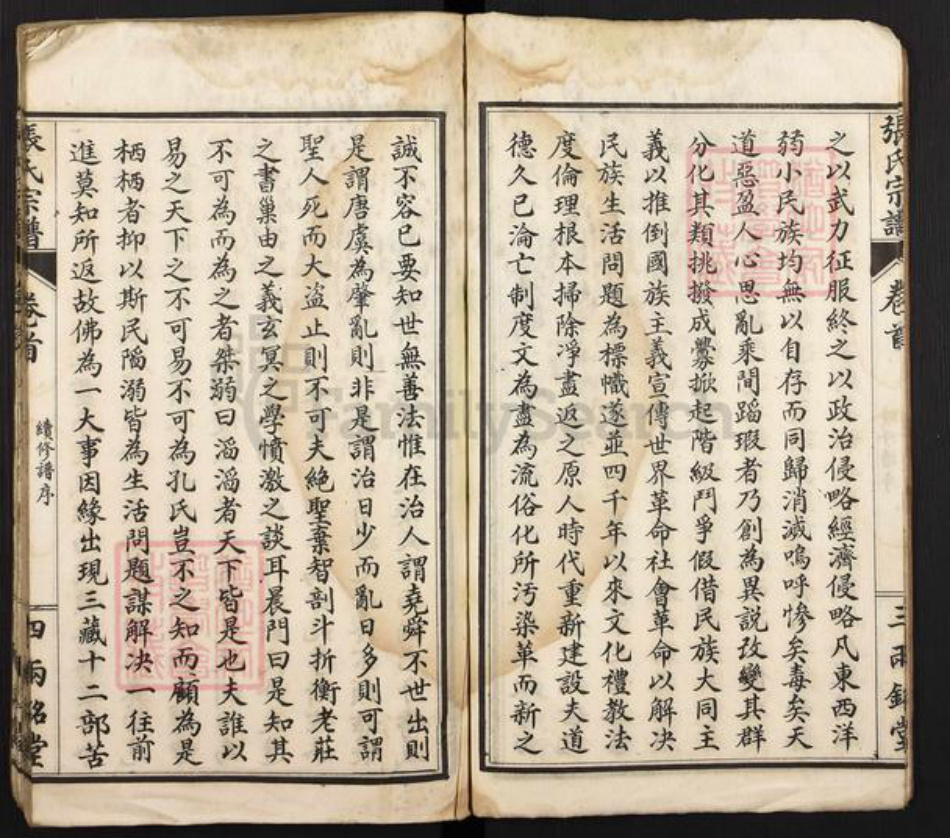 張氏宗譜
卷首
三
兩銘堂
之以武力征服終之以政治侵略經濟侵略凡東西洋
弱小民族均無以自存而同歸消滅嗚呼慘矣毒矣天
道惡盈人心思亂乘間蹈瑕者乃創為異說改變其群
分化其類挑撥成釁掀起階級鬥爭假借民族大同主
義以推倒國族主義宣傳世界革命社會革命以解決
民族生活問題為標幟遂並四千年以來文化禮教法
度倫理根本掃除淨盡返之原人時代重新建設夫道
德久已淪亡制度文為盡為流俗化所污染革而新之
誠不容已要知世無善法惟在治人謂堯舜不世出則
是謂唐虞為肇亂則非是謂治日少而亂日多則可謂
聖人死而大盜止則不可夫絕聖棄智剖斗折衡老莊
之書巢由之義玄冥之學憤激之談耳晨門曰是知其
不可為而為之者桀溺曰滔滔者天下皆是也夫誰以
易之天下之不可易不可為孔氏豈不之知而顧為是
栖栖者抑以斯民陷溺皆為生活問題謀解決一往前
進莫知所返故佛為一大事因緣出現三藏十二部苦
張氏宗譜
卷首
續修譜序
四
兩銘堂
FamilySearch